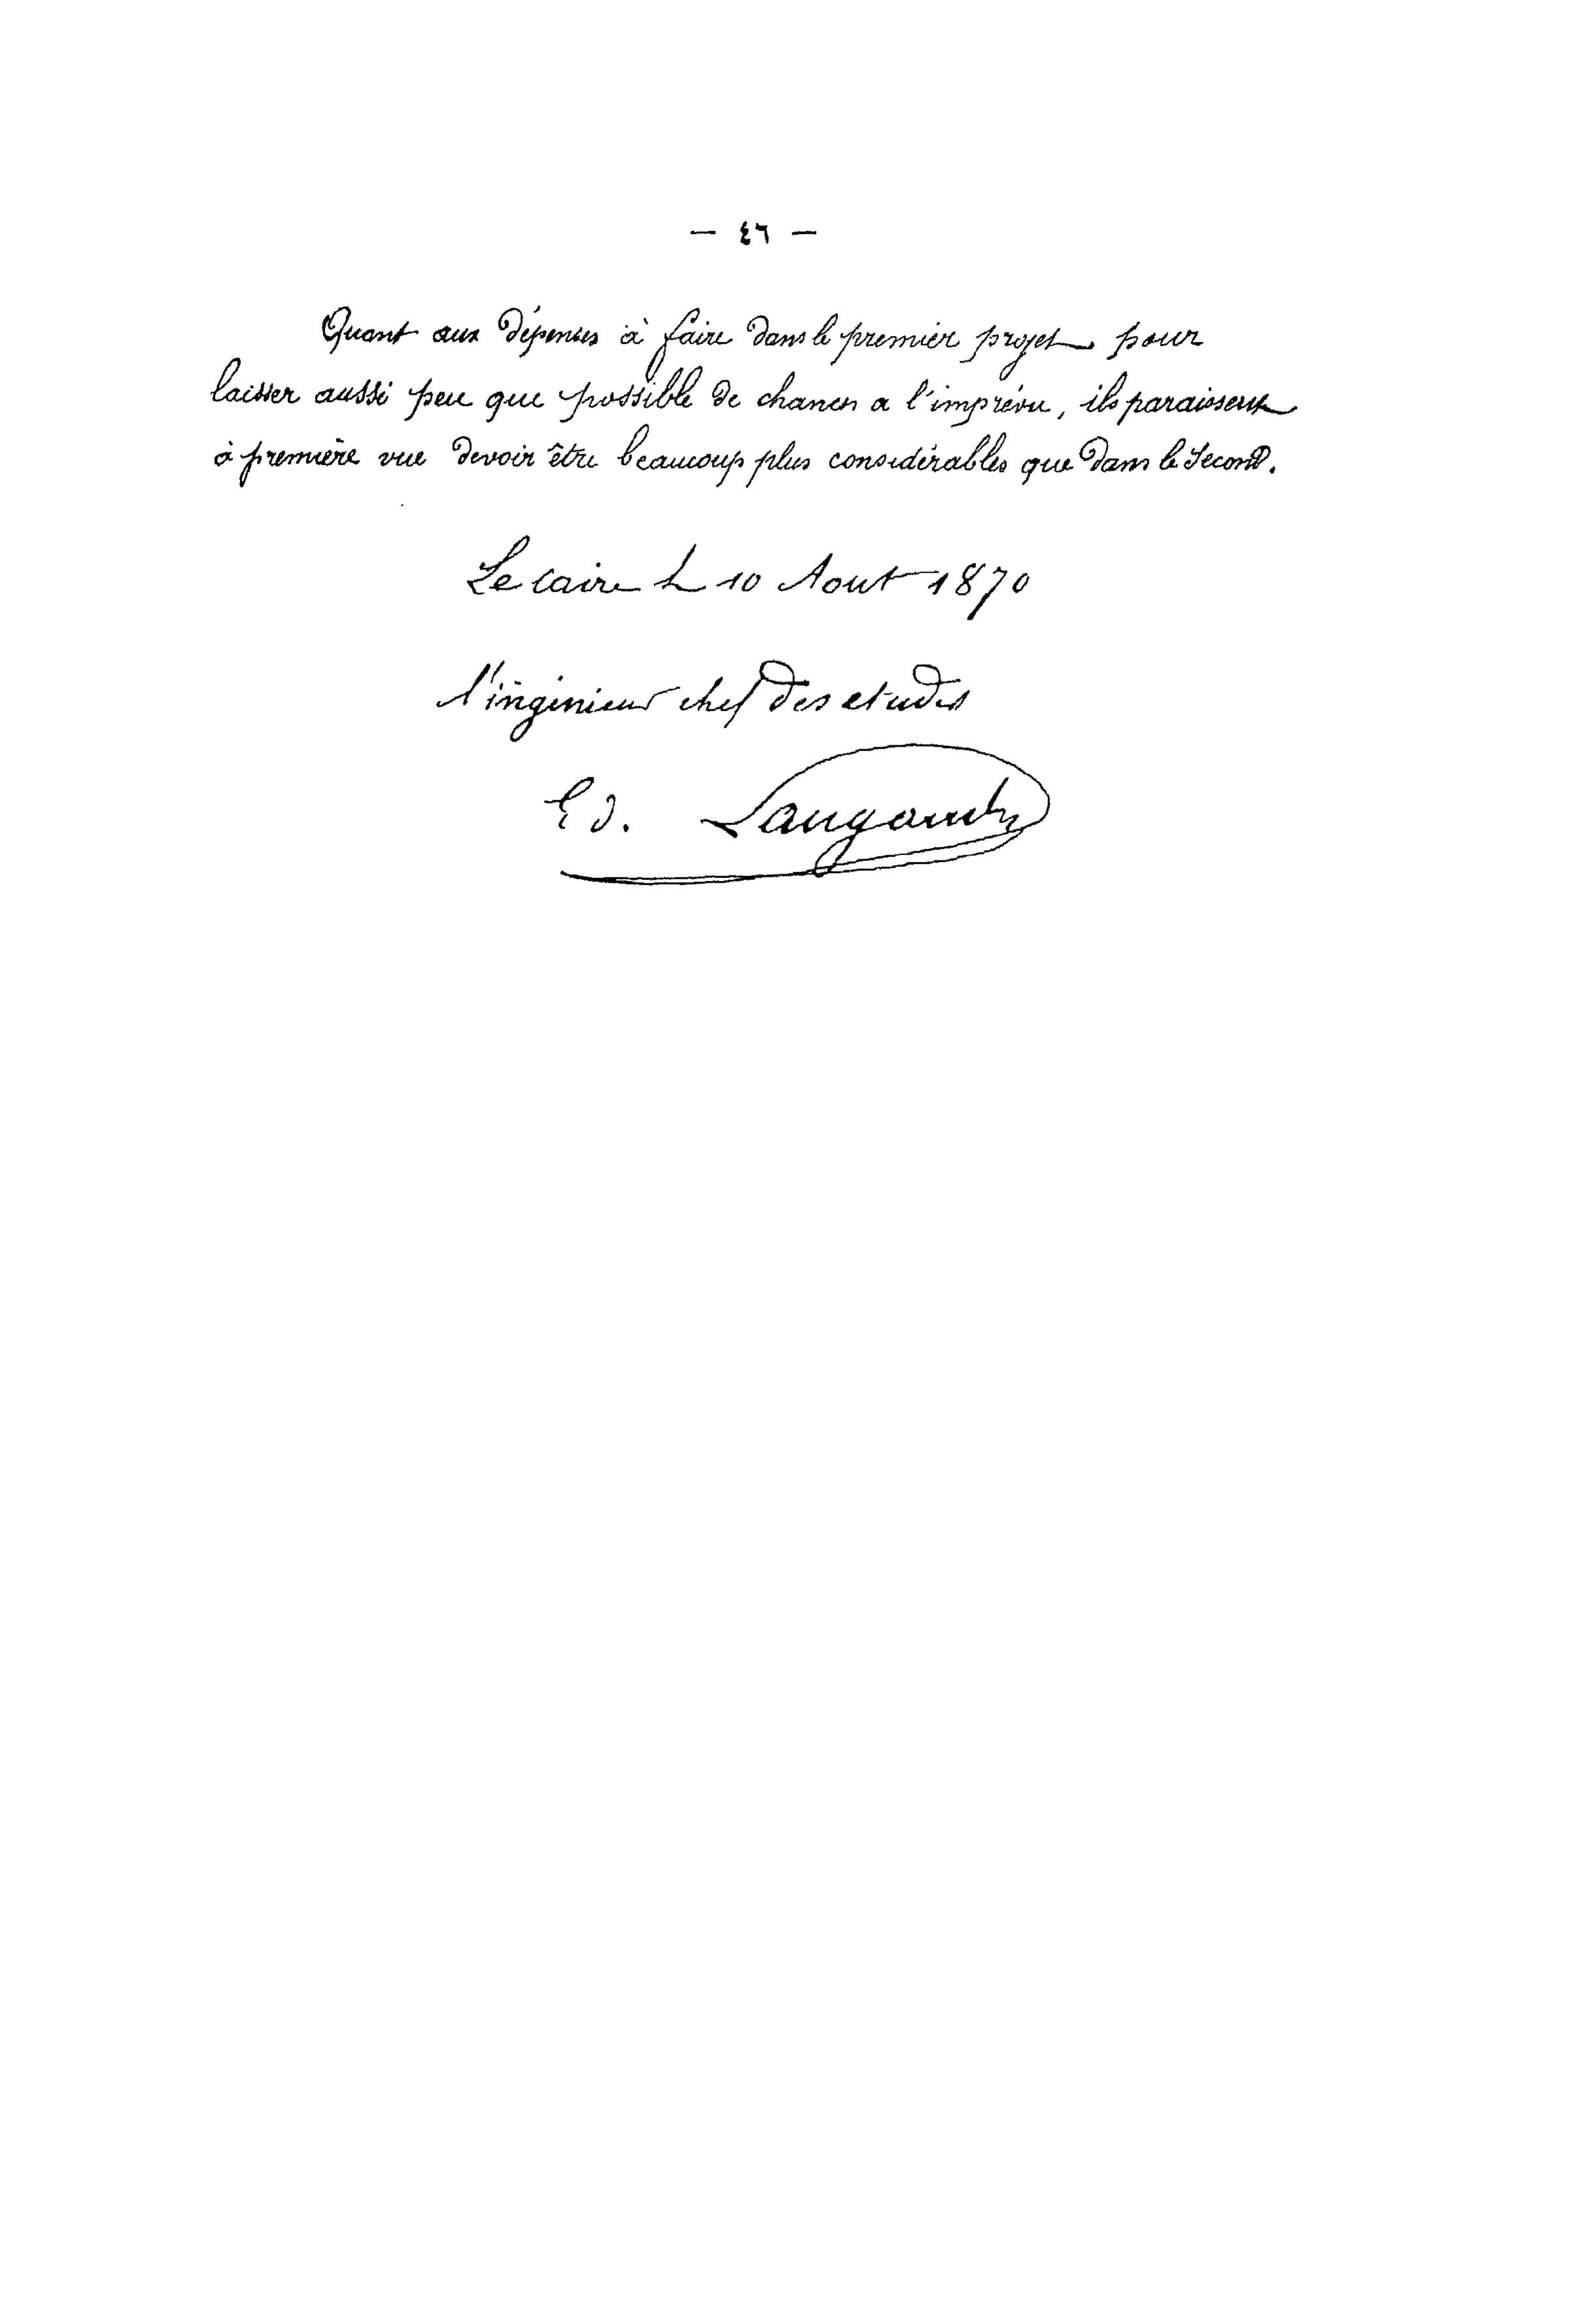 — ٤٦ —
Quant aux dépenses à faire dans le premier projet pour
laisser aussi peu que possible de chances a l'imprévu, ils paraissent
à première vue devoir être beaucoup plus considérables que dans le Second.
Le caire le 10 Aout 1870
l'ingénieur chef des etudes
Ed.